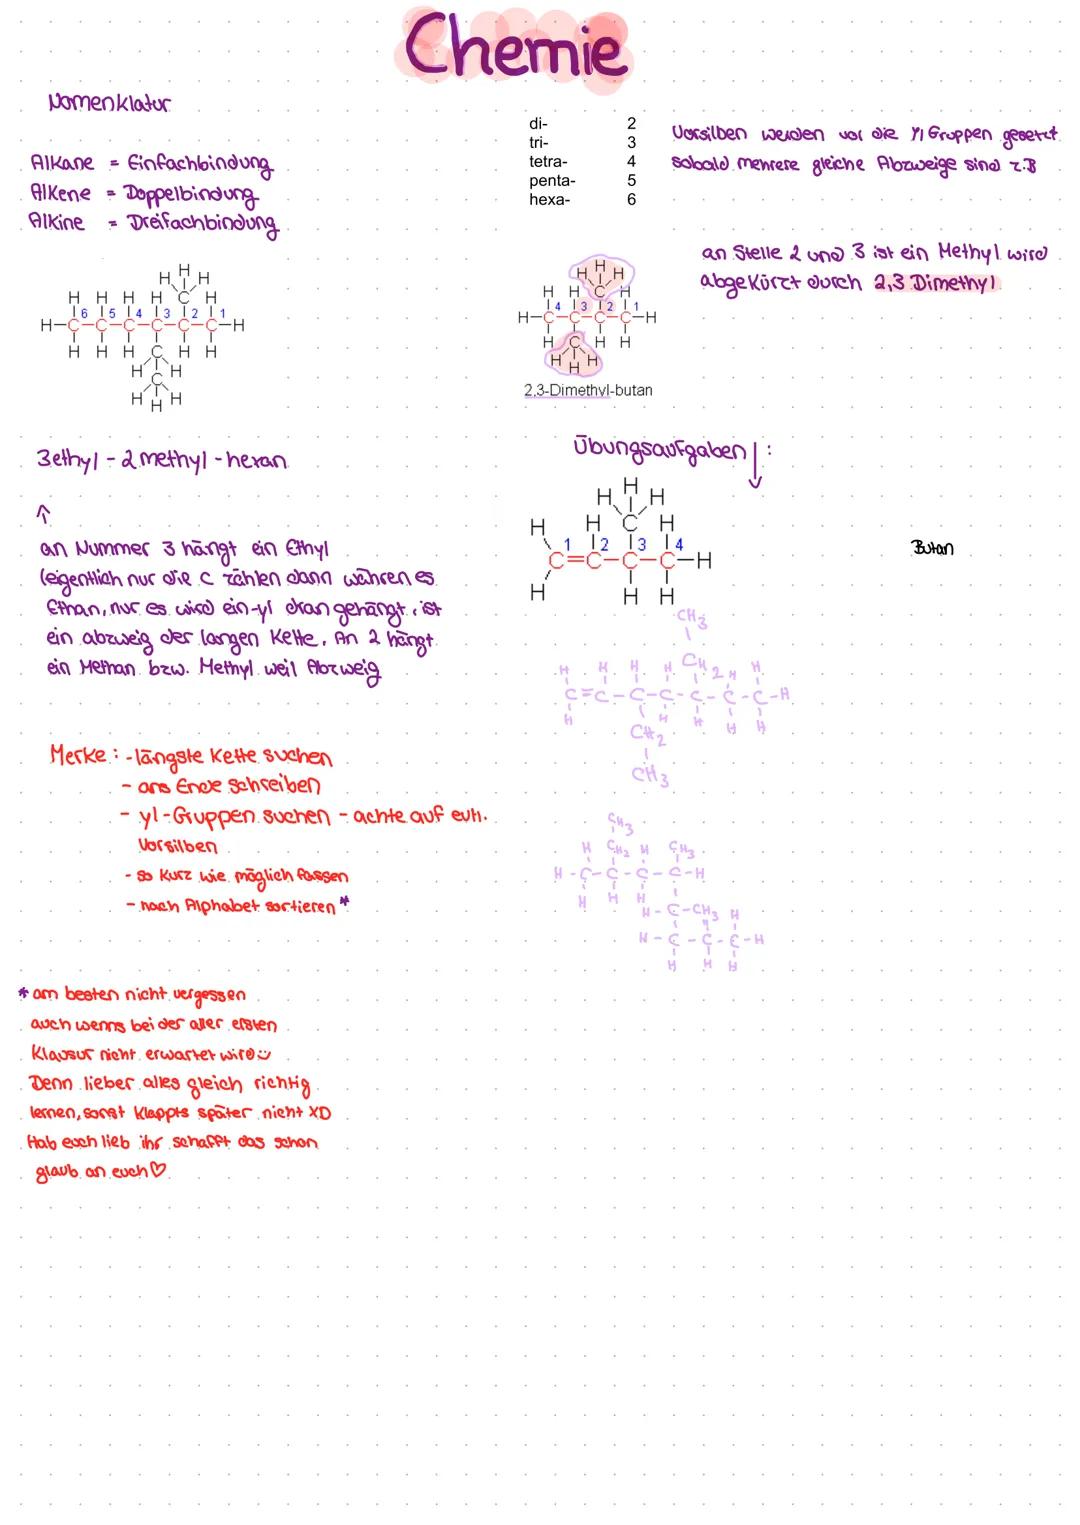 Chemie
Nomenklatur
Alkane = Einfachbindung
Alkene = Doppelbindung
Alkine = Dreifachbindung
di- 2
tri- 3
tetra- 4
penta- 5
hexa- 6
Vorsilben werden vor die yl Gruppen gesetzt
sobald mehrere gleiche Abzweige sind z.B
an Stelle 2 und 3 ist ein Methyl wird
abgekürzt durch 2,3 Dimethyl
H
H H
H H H H C H
6 5 4 3 2 1
H-C-C-C-C-C-C-H
H H H C H H
H H
C
H H H
H
H H
H H C H
4 3 2 1
H-C-C-C-C-H
H C H H
H H H
2,3-Dimethyl-butan
3ethyl - 2methyl - hexan
↑
an Nummer 3 hängt ein Ethyl
(eigentlich nur die C zählen dann währen es
Ethan, nur es wird ein-yl dran gehängt, ist
ein abzweig der langen Kette. An 2 hängt
ein Methan bzw. Methyl weil Abzweig
Übungsaufgaben ↓:
H
H H
H H C H
1 2 3 4
C=C-C-C-H
H H H
Butan
CH3
H H H H CH2 H H
C=C-C-C-C-C-C-H
H H H H H
CH2
CH3
Merke: -längste Kette suchen
- ans Ende schreiben
- yl-Gruppen suchen - achte auf evtl.
Vorsilben
- so kurz wie möglich fassen
- nach Alphabet sortieren *
CH3
H CH2 H CH3
H-C-C-C-C-H
H H H
H-C-CH3 H
H-C-C-C-H
H H H
* am besten nicht vergessen
auch wenns bei der aller ersten
Klausur nicht erwartet wird
Denn lieber alles gleich richtig
lernen, sonst klappts später nicht XD
Hab euch lieb ihr schafft das schon
glaub an euch♡